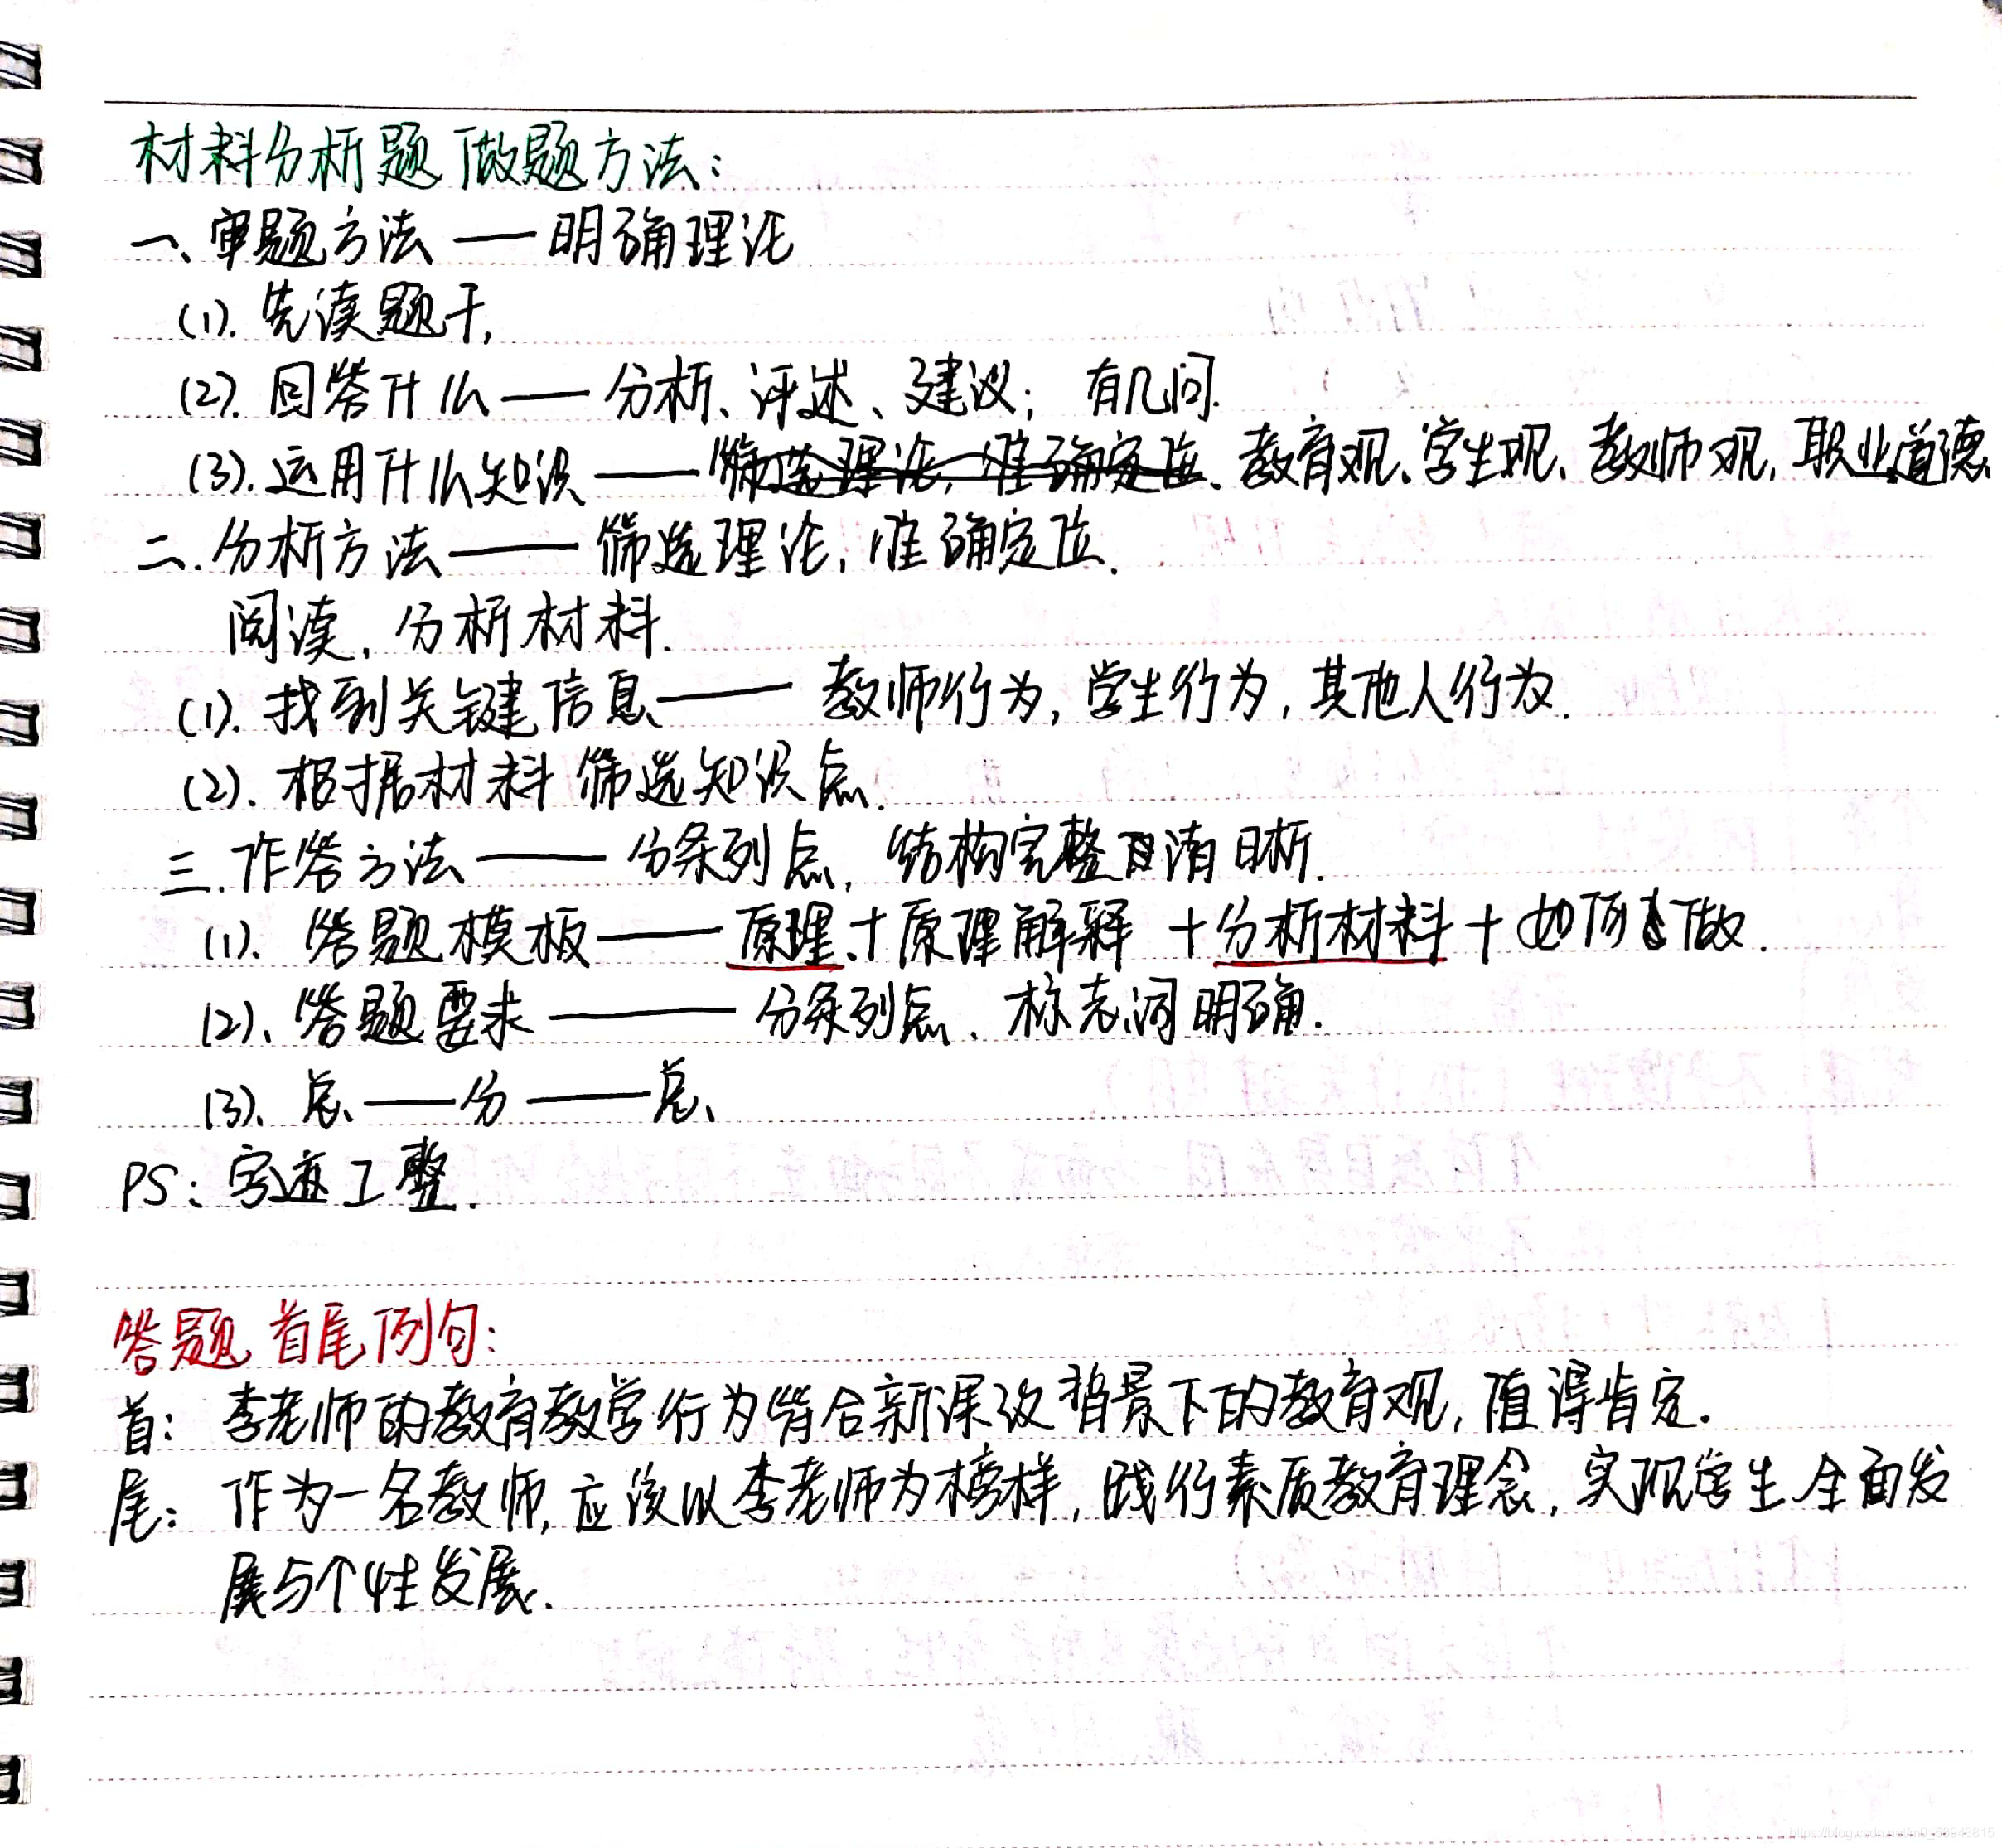 材料分析题做题方法：
一、审题方法——明确理论
(1). 先读题干,
(2). 回答什么——分析、评述、建议；有几问.
(3). 运用什么知识——筛选理论, 准确定位. 教育观、学生观、教师观, 职业道德
二. 分析方法——筛选理论, 准确定位.
阅读, 分析材料.
(1). 找到关键信息——教师行为, 学生行为, 其他人行为.
(2). 根据材料筛选知识点.
三. 作答方法——分条列点, 结构完整 清晰.
(1). 答题模板——原理+原理解释+分析材料+如何做.
(2). 答题要求——分条列点、标志词明确.
(3). 总——分——总、
PS：字迹工整.
答题首尾例句：
首：李老师的教育教学行为符合新课改背景下的教育观, 值得肯定.
尾：作为一名教师, 应该以李老师为榜样, 践行素质教育理念, 实现学生全面发
展与个性发展.